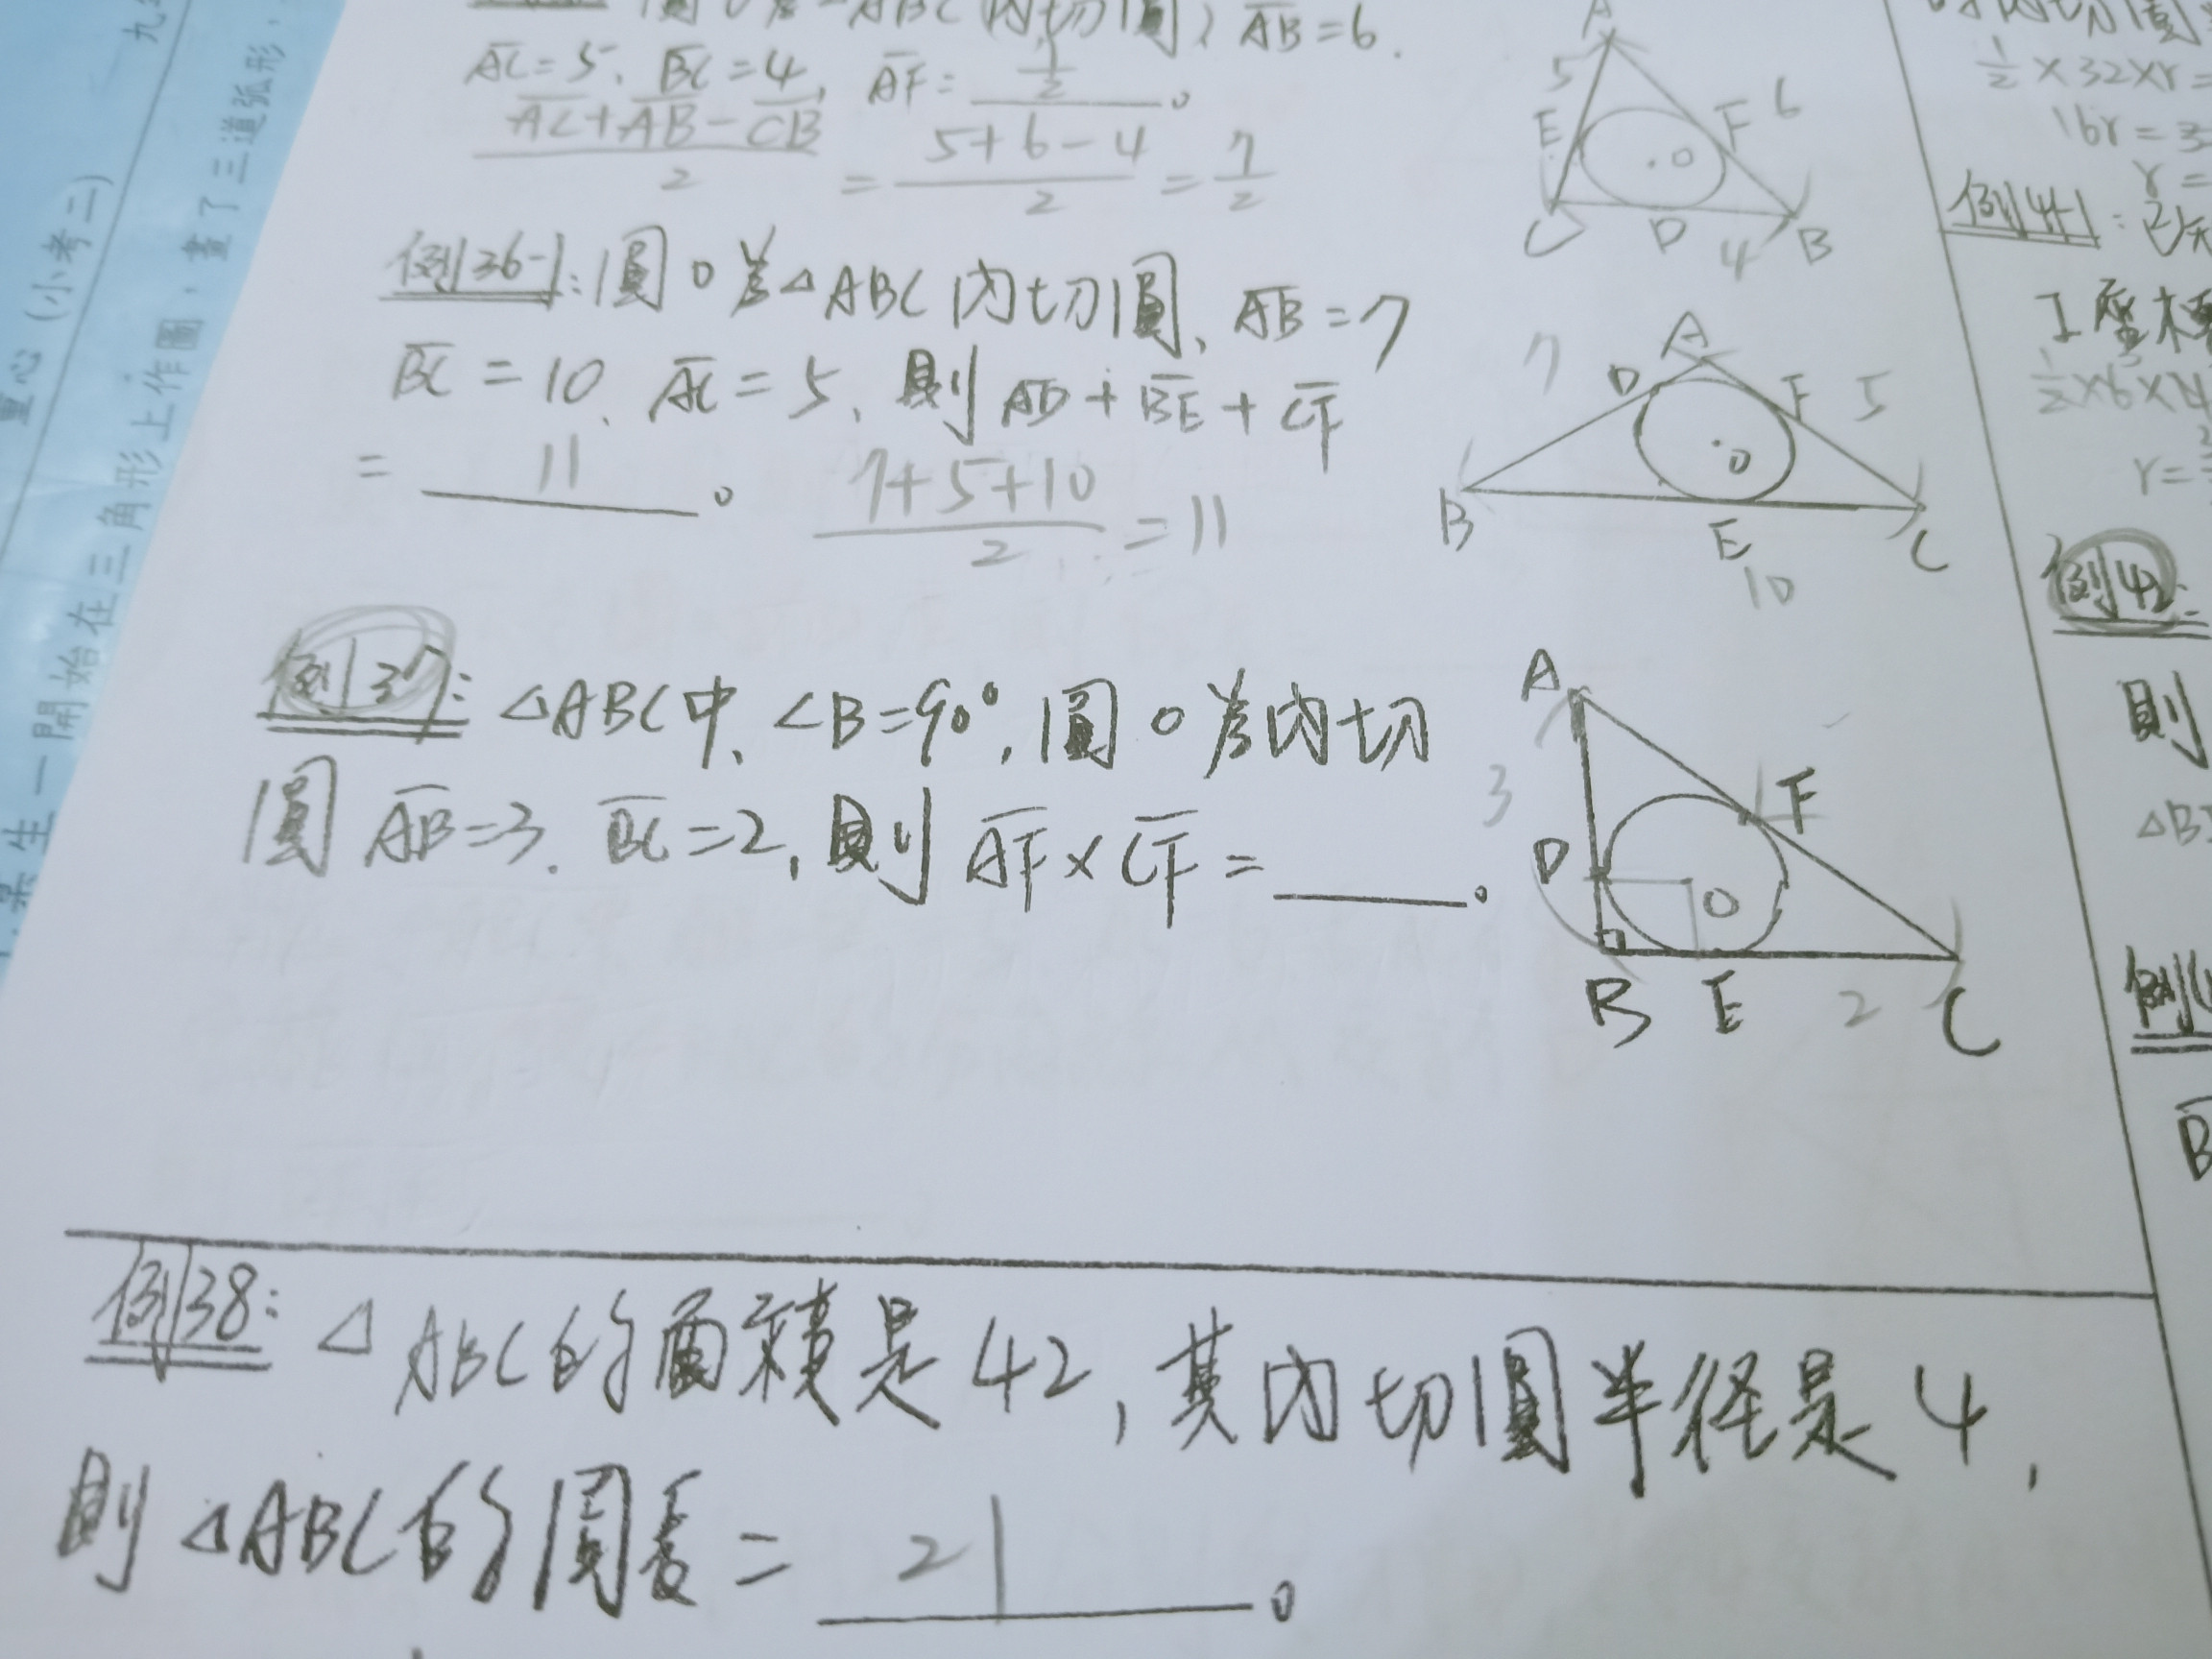 圓O為△ABC內切圓, AB=6.
AC=5. BC=4, AF= 7/2 。
(AC+AB-CB)/2 = (5+6-4)/2 = 7/2
A
5
E
F 6
O
C D 4 B
例36-1: 圓O為△ABC內切圓, AB=7
BC=10. AC=5, 則AD+BE+CF
= 11 。 (7+5+10)/2 = 11
A
7 D F 5
O
B E C
10
例37: △ABC中, ∠B=90°, 圓O為內切
圓 AB=3. BC=2, 則AF×CF=____。
A
3 F
D O
B E 2 C
例38: △ABC的面積是42, 其內切圓半径是4,
則△ABC的周長= 21 。
½×32×r=
16r=3
r=
例41-1:
½×6×4
r=
例42:
則
重心 (小考二)
某生一開始在三角形上作圖，畫了三道弧形，